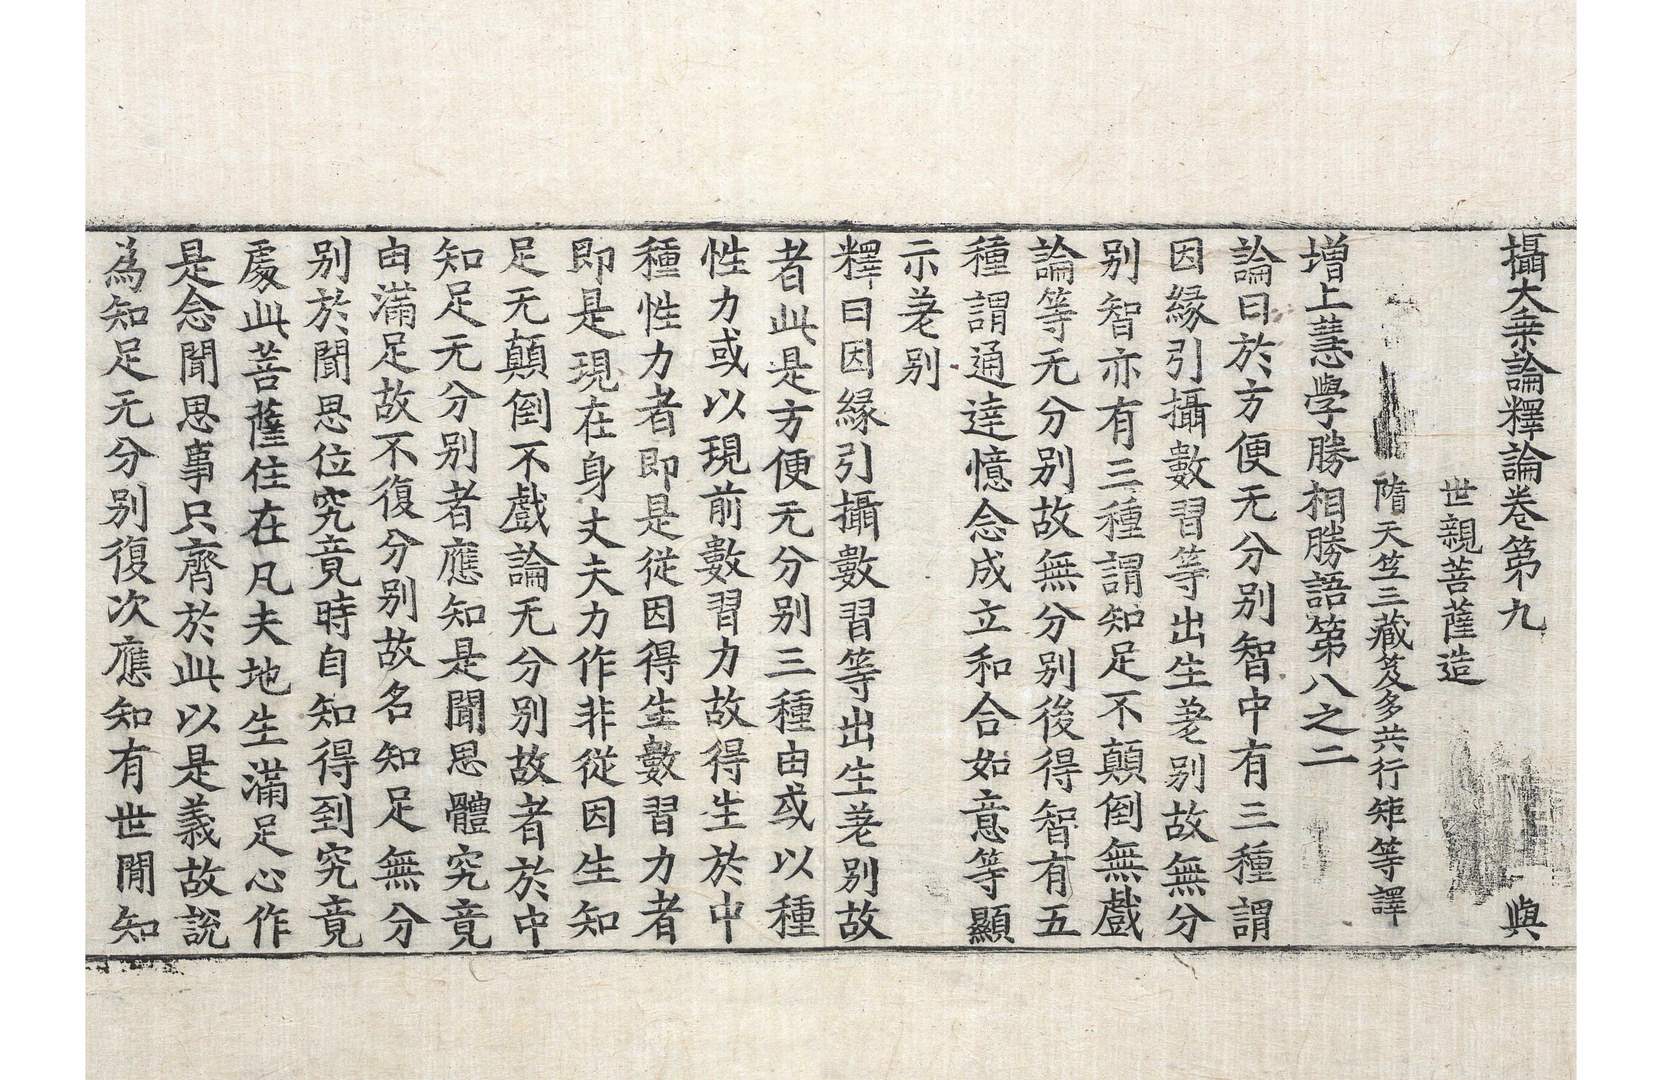 攝大乗論釋論卷第九 與
世親菩薩造
隋天竺三藏笈多共行矩等譯
增上慧學勝相勝語第八之二
論曰於方便无分别智中有三種謂
因緣引攝數習等出生差别故無分
别智亦有三種謂知足不顛倒無戲
論等无分别故無分别後得智有五
種謂通達憶念成立和合如意等顯
示差别
釋曰因緣引攝數習等出生差别故
者此是方便无分别三種由或以種
性力或以現前數習力故得生於中
種性力者即是従因得生數習力者
即是現在身丈夫力作非従因生知
足无顛倒不戲論无分别故者於中
知足无分别者應知是聞思體究竟
由滿足故不復分别故名知足無分
别於聞思位究竟時自知得到究竟
處此菩薩住在凡夫地生滿足心作
是念聞思事只齊於此以是義故說
為知足无分别復次應知有世間知